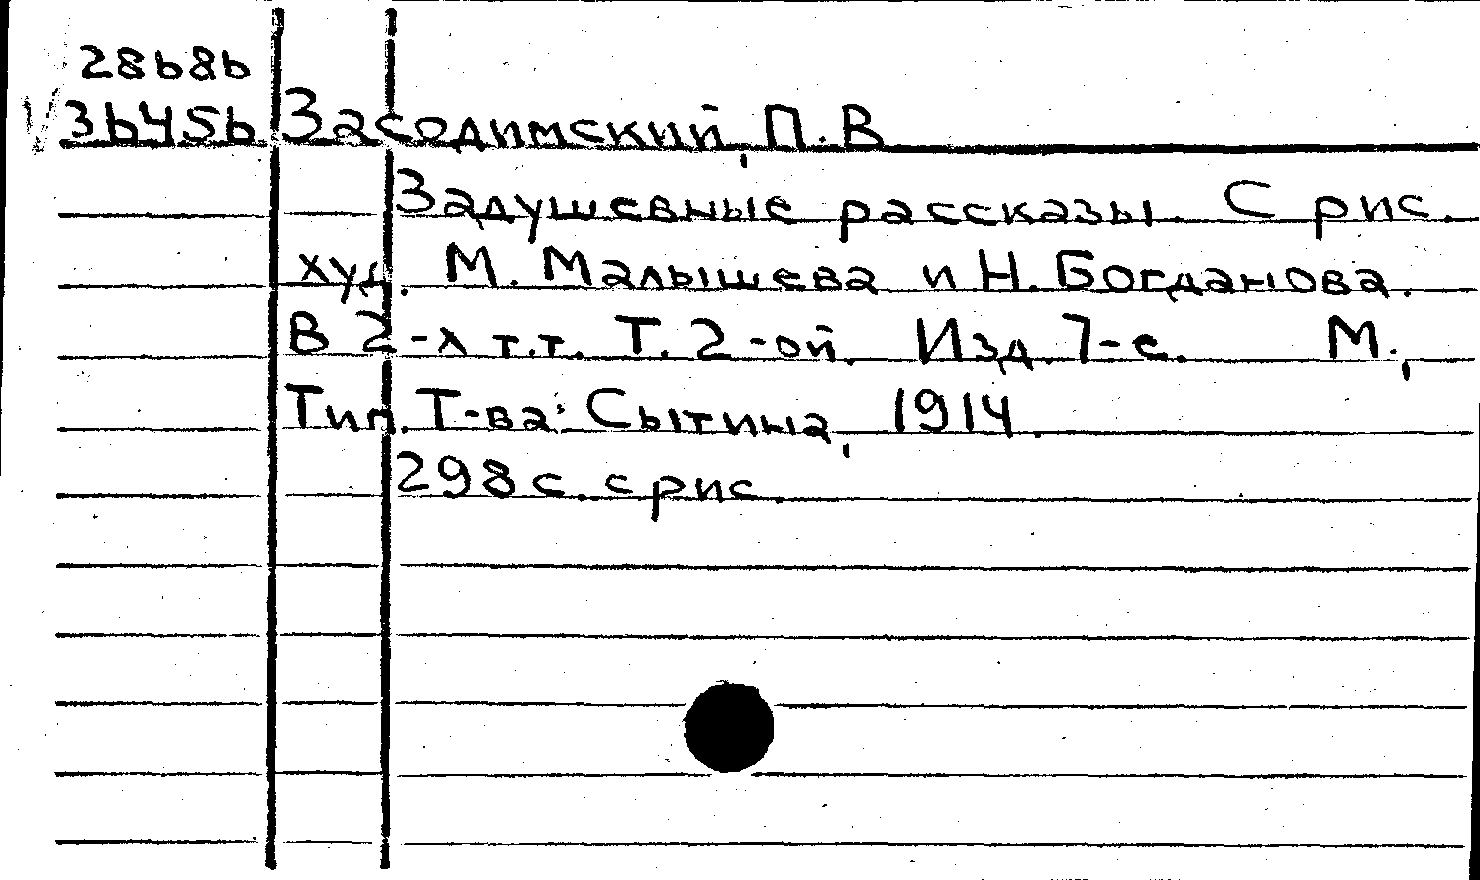 28686
36456 Засодимский, П. В
Задушевные рассказы. С рис.
худ. М. Малышева и Н. Богданова.
В 2-х т.т. Т. 2-ой. Изд. 7-е. М.,
Тип. Т-ва: Сытина, 1914.
298 с. с рис.